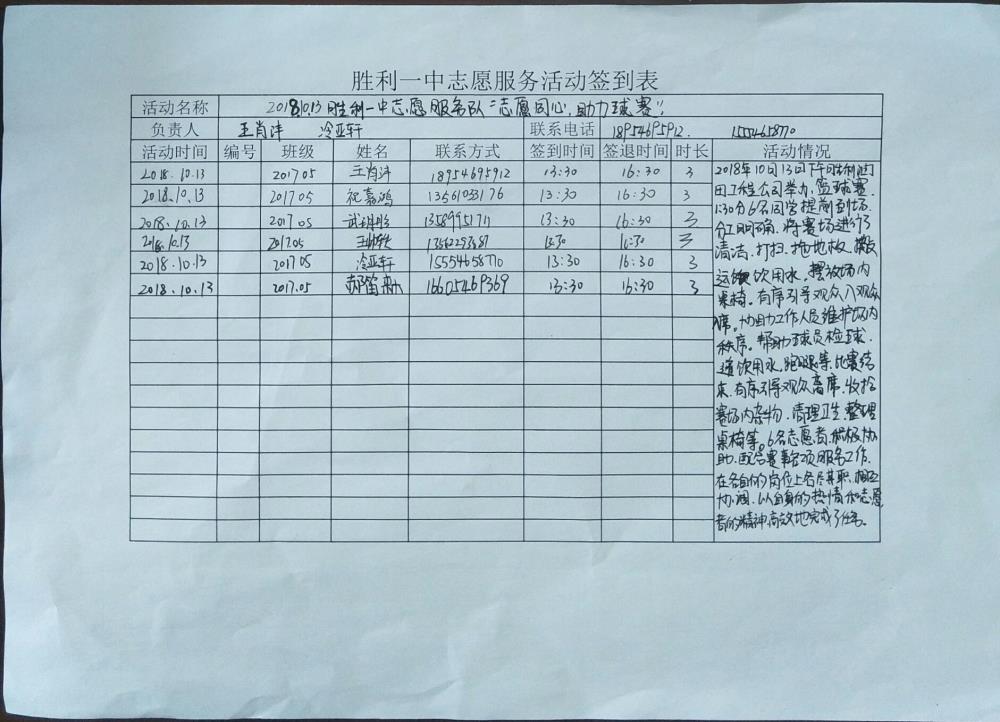 胜利一中志愿服务活动签到表
活动名称 2018.10.13胜利一中志愿服务队“志愿同心,助力球赛”
负责人 王肖沣 冷亚轩 联系电话 18954695912. 15554658770
活动时间 编号 班级 姓名 联系方式 签到时间 签退时间 时长 活动情况
2018.10.13 201705 王肖沣 18954695912 13:30 16:30 3
2018.10.13 201705 祝嘉鸿 13561033176 13:30 16:30 3
2018.10.13 201705 13589951711 13:30 16:30 3
2018.10.13 2017.05 13:30 16:30 3
2018.10.13 201705 冷亚轩 15554658770 13:30 16:30 3
2018.10.13 2017.05 郝笛舟 16605469369 13:30 16:30 3
2018年10月13日下午胜利油
田工程公司举办篮球赛.
1:30分6名同学提前到场.
分工明确.将赛场进行了
清洁、打扫、拖地板.搬
运饮用水.摆放场内
桌椅.有序引导观众入观众
席。协助工作人员维护场内
秩序。帮助球员捡球.
递饮用水.跑腿等.比赛结
束.有序引导观众离席.收拾
赛场内杂物.清理卫生.整理
桌椅等。6名志愿者.积极协
助.配合赛事各项服务工作.
在各自的岗位上各尽其职.相互
协调.以自身的热情和志愿
者的精神高效地完成了任务。